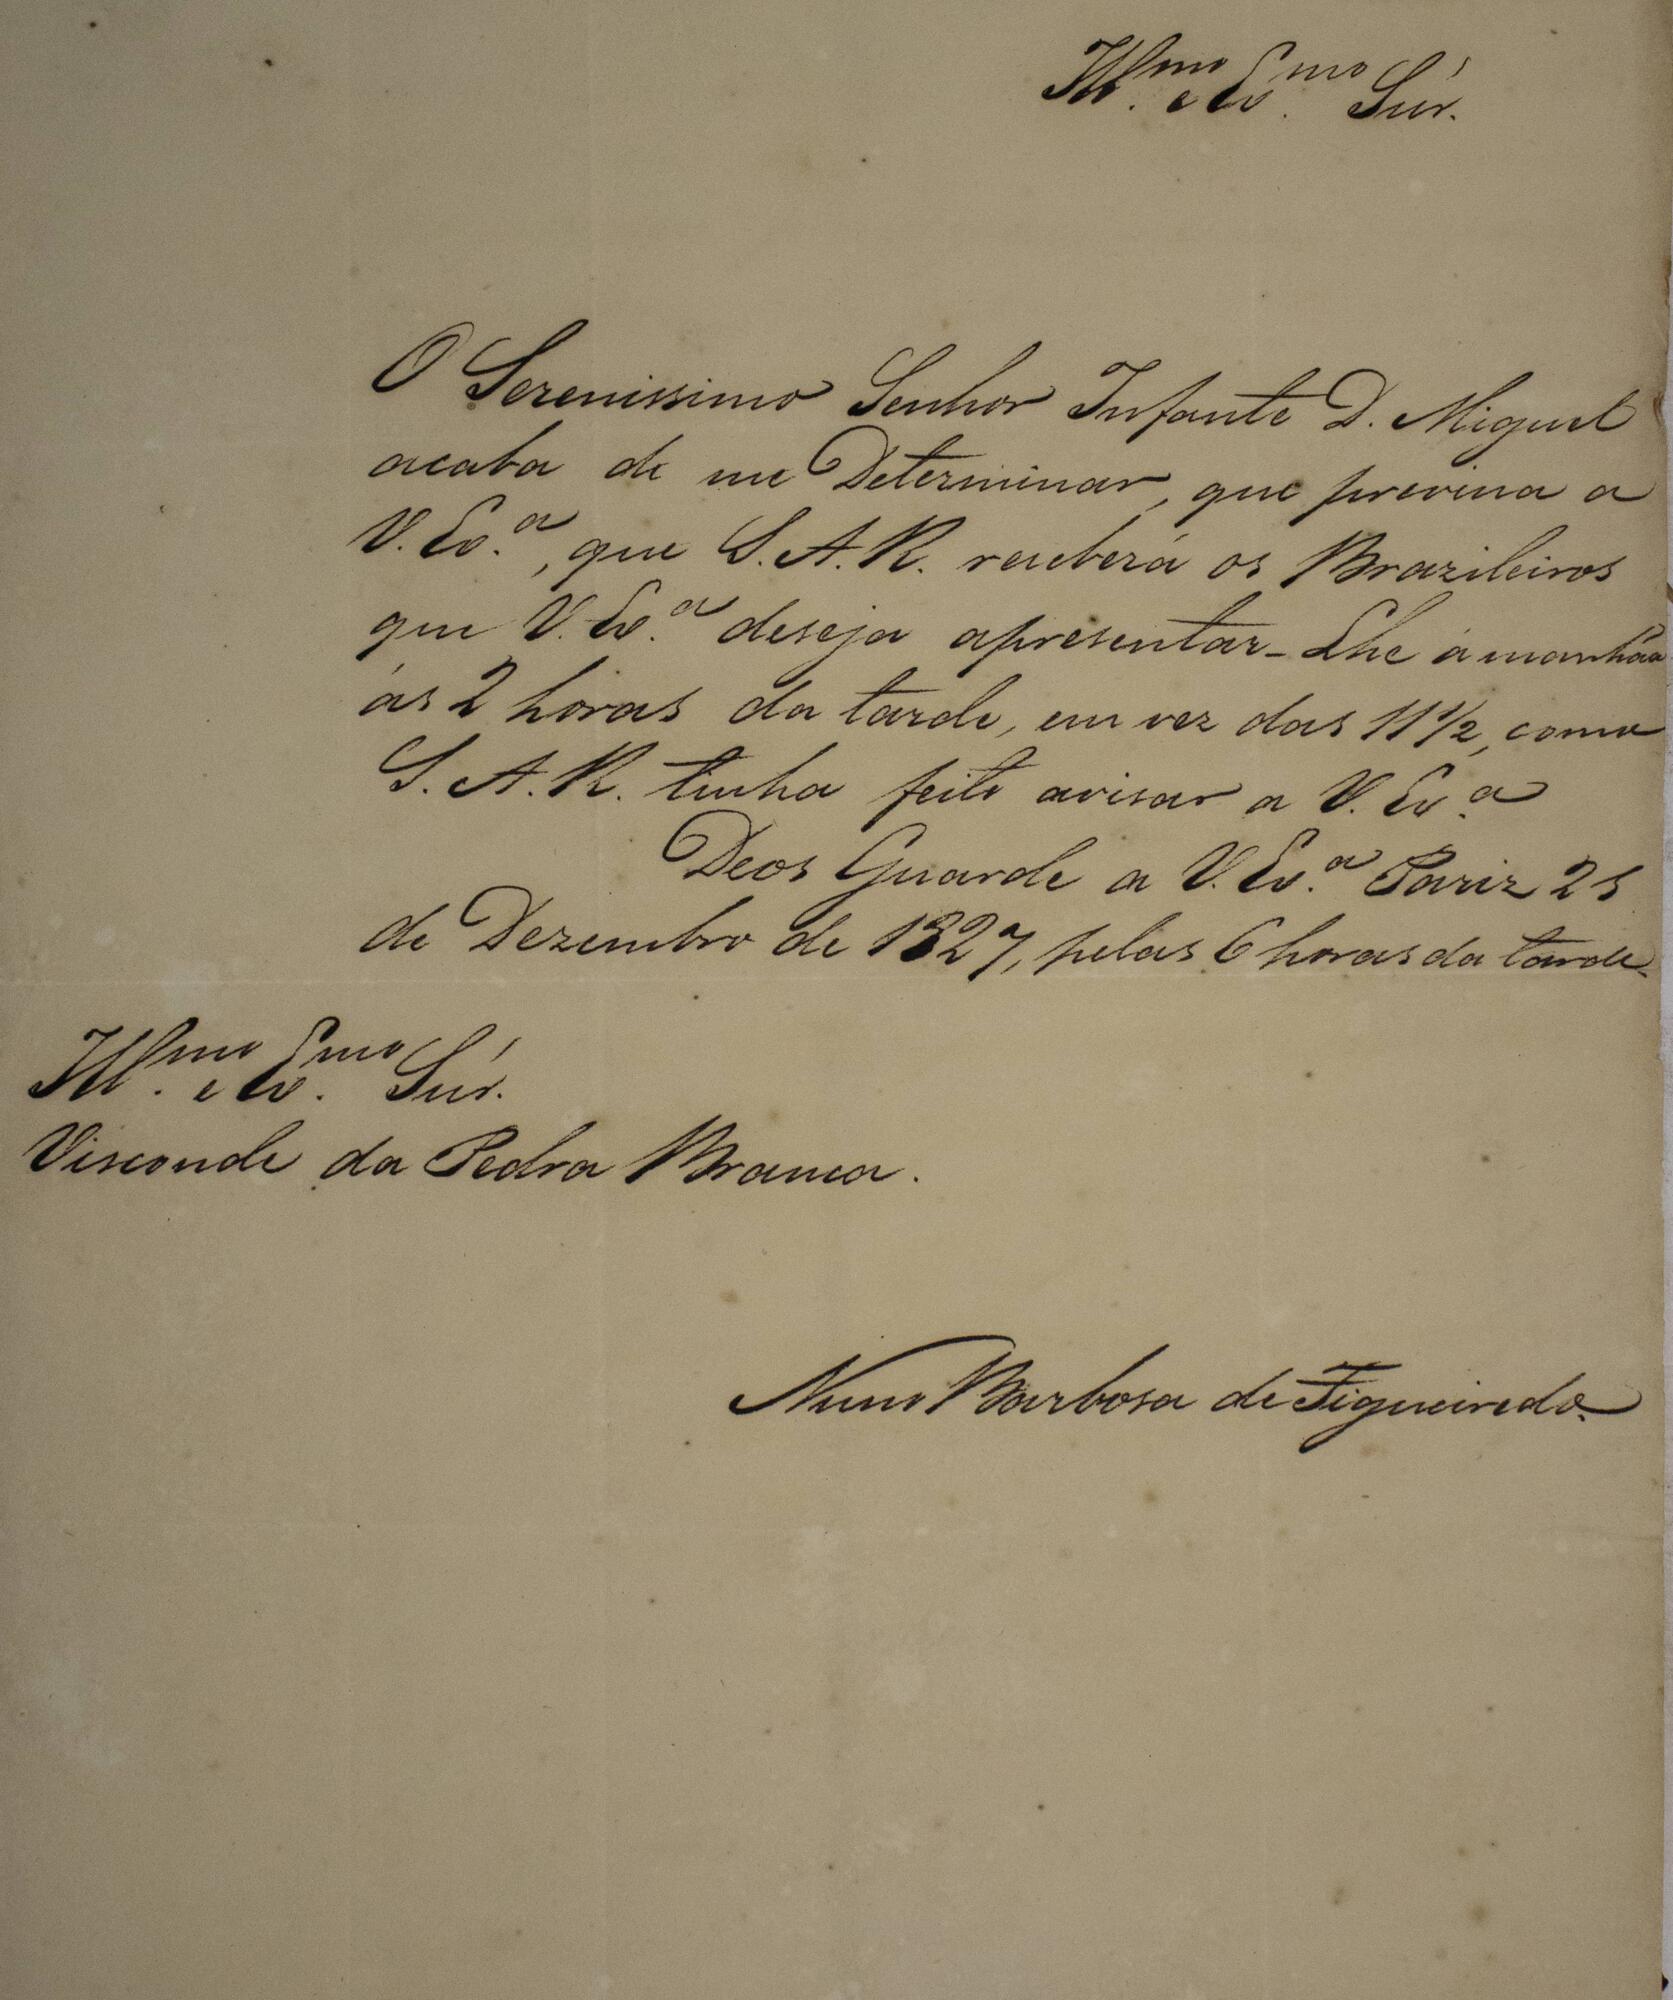 Ill.mo e Ex.mo Snr.
O Serenissimo Senhor Infante D. Miguel
acaba de me Determinar, que previna a
V. Ex.a, que S. A. R. receberá os Brazileiros
que V. Ex.a deseja apresentar-Lhe ámanhãa
ás 2 horas da tarde, em vez das 11 1/2, como
S. A. R. tinha feito avisar a V. Ex.a
Deos Guarde a V. Ex.a Pariz 25
de Dezembro de 1827, pelas 6 horas da tarde.
Ill.mo e Ex.mo Snr.
Visconde da Pedra Branca.
Nuno Barbosa de Figueiredo.